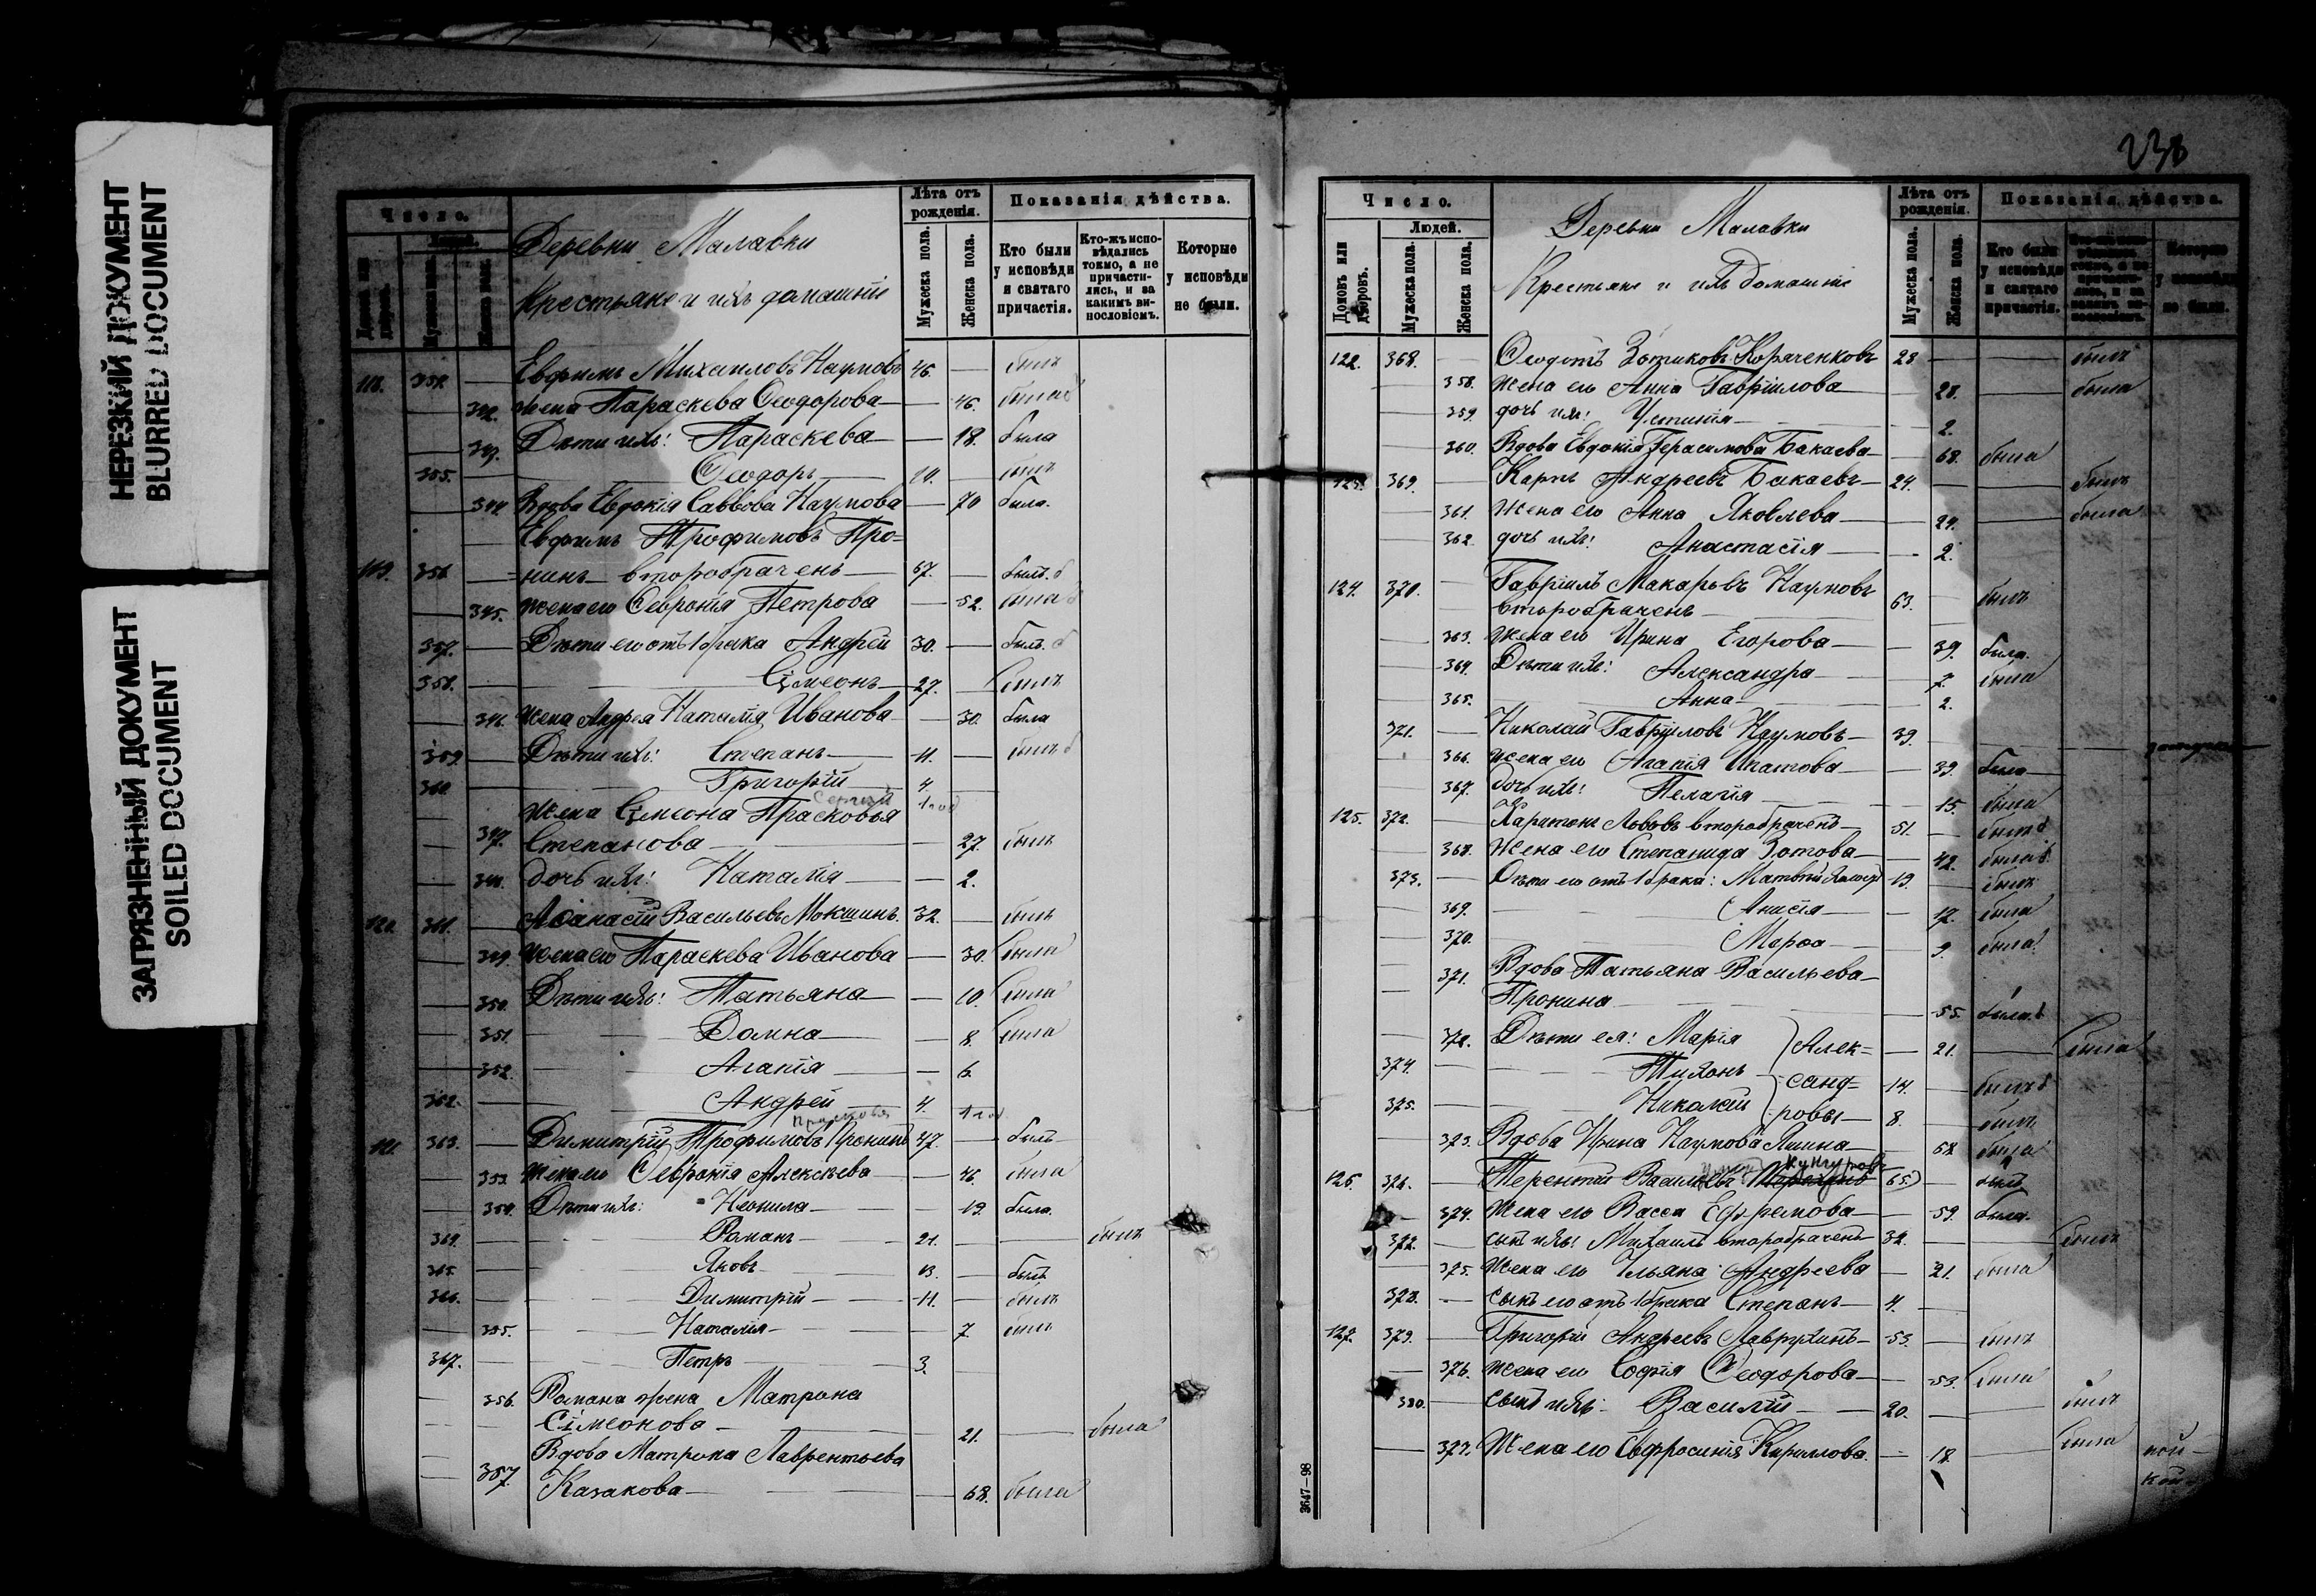 НЕРЕЗКИЙ ДОКУМЕНТ
BLURRED DOCUMENT
ЗАГРЯЗНЕННЫЙ ДОКУМЕНТ
SOILED DOCUMENT
Число.
Лѣта отъ рожденія.
Показанія дѣйства.
Мужеска пола.
Женска пола.
Кто были у исповѣди и святаго причастія.
Кто-жъ исповѣдались токмо, а не причастились, и за какимъ винословіемъ.
Которые у исповѣди не были.
Деревни Малавки
Крестьяне и ихъ домашніе
118. 354. — Евфимъ Михаиловъ Наумовъ 46. — былъ
342. жена Параскева Ѳеодорова — 46. была
343. Дѣти ихъ: Параскева — 18. была
355. — Ѳеодоръ — 10. — былъ
344. Вдова Евдокія Саввова Наумова — 70 была.
Евфимъ Трофимовъ Про=
119. 356. — =нинъ второбраченъ — 57. — былъ.
345. жена его Ѳеврония Петрова — 52. была
357. — Дѣти его отъ 1 брака Андрей 30. — былъ.
358. — Сѵмеонъ — 27. — былъ
346. жена Андрея Наталія Иванова — 30. была
359 — Дѣти ихъ: Степанъ — 11. — былъ
360 — Григорій 4. —
Сергій 1 год
жена Сѵмеона Прасковья
347. Степанова — 27. былъ
348. дочь ихъ: Наталія — 2.
120. 361. — Аѳанасій Васильевъ Мокшинъ. 32. — былъ
349. жена его Параскева Иванова — 30. была
350. Дѣти ихъ: Татьяна — 10. была
351. — Домна — 8. была
352. — Агапія — 6.
362. — Андрей 4. —
121. 363. — Димитрій Трофимовъ Пронинъ 47. — былъ
353. жена его Ѳеврония Алексѣева — 46. была
354. Дѣти ихъ: Неонила — 19. была.
364. — Романъ — 21. — былъ
365. — Яковъ 13. — былъ
366. — Димитрій — 11. — былъ
355. — Наталія — 7 былъ
367. — Петръ 3.
356. Романа жена Матрона
Сѵмеонова — 21. — была
Вдова Матрона Лаврентьева
357. Казакова — 68. была
238
Число.
Домовъ или дворовъ.
Людей.
Мужеска пола.
Женска пола.
Лѣта отъ рожденія.
Показанія дѣйства.
Мужеска пола.
Женска пола.
Кто были у исповѣди и святаго причастія.
Деревни Малавки
Крестьяне и ихъ домашніе
122. 368. — Ѳеодотъ Зотиковъ Кораченковъ 28 — былъ
358. жена его Анна Гавріилова — 28. — была
359. дочь ихъ: Устинія — 2.
360. Вдова Евдокія Герасимова Бакаева — 68. была
123. 369. — Карпъ Андреевъ Бакаевъ — 24. — былъ
361. жена его Анна Яковлева — 24. — была
362. дочь ихъ: Анастасія — 2.
124. 370. — Гавріилъ Макарьевъ Наумовъ
второбраченъ — 63. — былъ
363. жена его Ирина Егорова — 39. была.
364. Дѣти ихъ: Александра — 7. была
365. — Анна — 2.
371. — Николай Гавріиловъ Наумовъ — 39. —
366. жена его Агапія Ипатова — 39. была
367. дочь ихъ: Пелагія — 15. была
125. 372. — Харитонъ Львовъ второбраченъ — 51. — былъ
368. жена его Степанида Зотова — 42. была
373. — Дѣти его отъ 1 брака: Матвѣй 19. — былъ
369. — Анисія — 12. была
370. — Марѳа — 9. была
371. Вдова Татьяна Васильева
Пронина — 55. была.
372. Дѣти ея: Марія } Алек= — 21. — была
374. — Тихонъ — санд= 14. — былъ
375. — Николай } ровы — 8. — былъ
373. Вдова Ирина Наумова Яшина — 62 была
Кунгуровъ
126. 376. — Терентій Васильевъ 65. — былъ
374. жена его Васса Ефремова — 59. была.
377. — сынъ ихъ: Михаилъ второбраченъ 32. — былъ
375. жена его Ульяна Андреева — 21. была
378. — сынъ его отъ 1 брака Степанъ — 4. —
127. 379. — Григорій Андреевъ Лаврухинъ — 53. — былъ
376. жена его Софія Ѳеодорова — 53. была
380. — сынъ ихъ: Василій — 20. — былъ
377. Жена его Евфросинія Кирилова. — 18. — была
3647—98